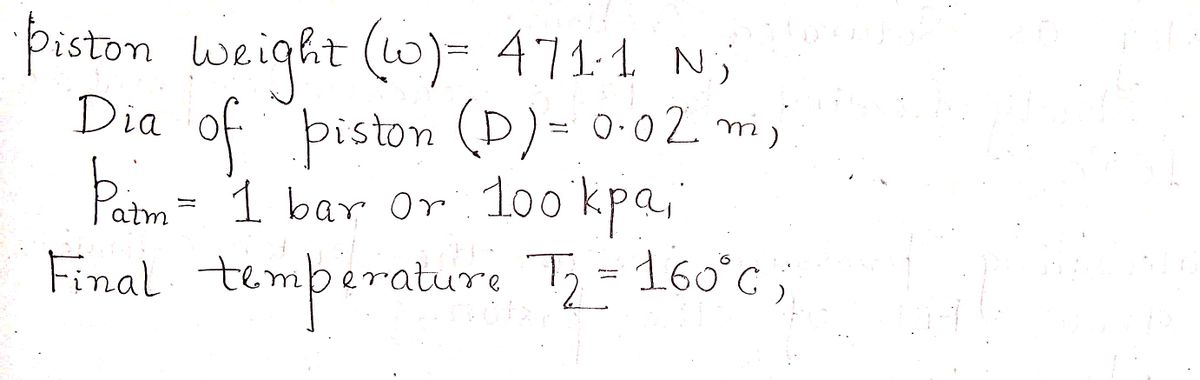 piston weight (w) = 471.1 N;
Dia of piston (D) = 0.02 m;
Patm = 1 bar or 100 kpa;
Final temperature T2 = 160°C;